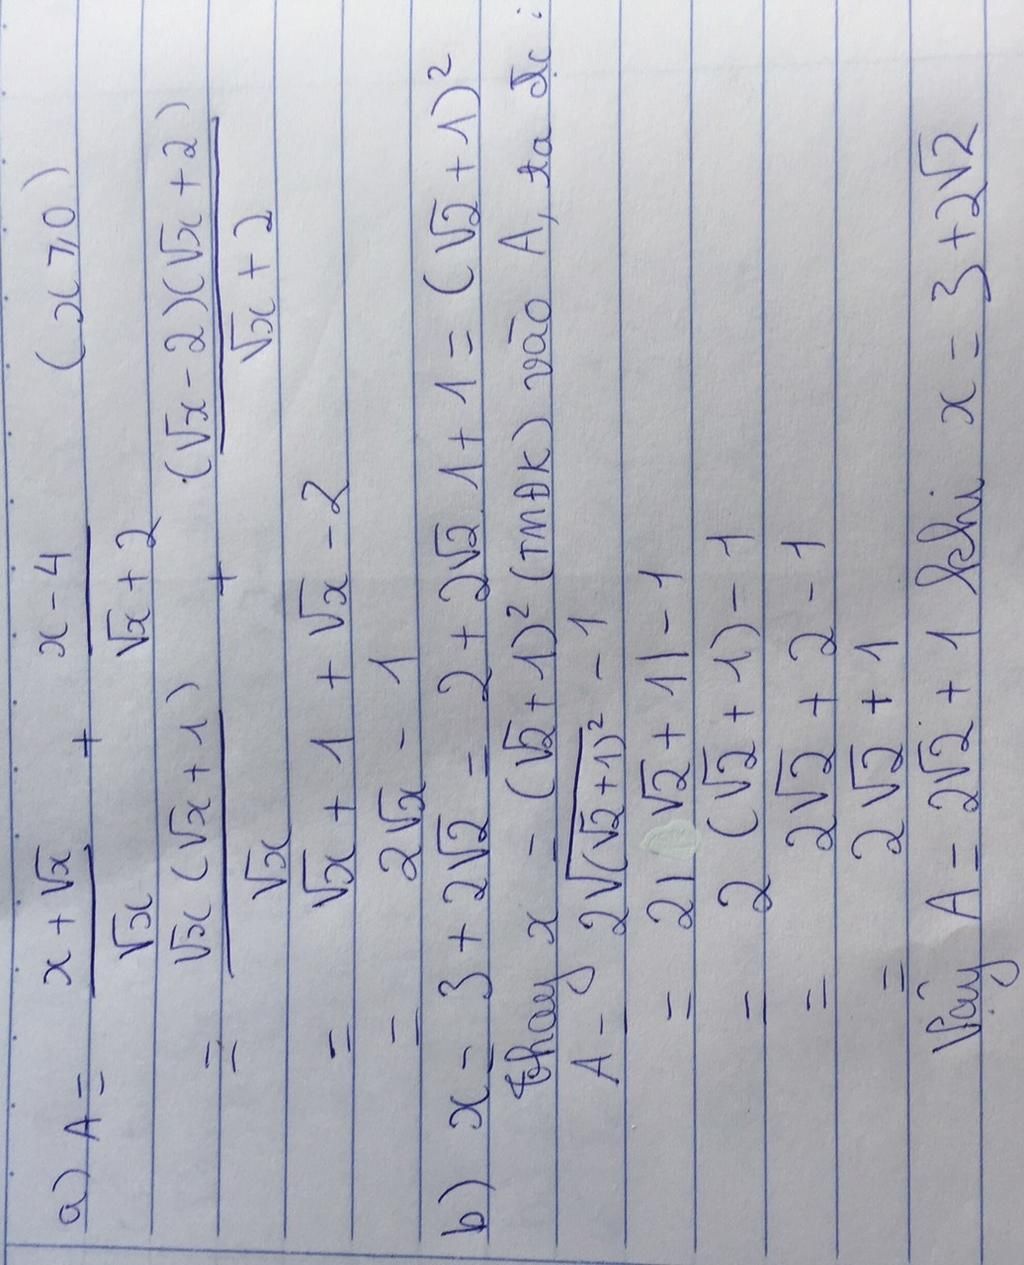 a) A = \frac{x + \sqrt{x}}{\sqrt{x}} + \frac{x - 4}{\sqrt{x} + 2} (x ⩾ 0)
= \frac{\sqrt{x}(\sqrt{x} + 1)}{\sqrt{x}} + \frac{(\sqrt{x} - 2)(\sqrt{x} + 2)}{\sqrt{x} + 2}
= √x + 1 + √x - 2
= 2√x - 1
b) x = 3 + 2√2 = 2 + 2√2.1 + 1 = (√2 + 1)²
thay x = (√2 + 1)² (TMĐK) vào A, ta đc :
A = 2\sqrt{(√2 + 1)²} - 1
= 2|√2 + 1| - 1
= 2(√2 + 1) - 1
= 2√2 + 2 - 1
= 2√2 + 1
Vậy A = 2√2 + 1 khi x = 3 + 2√2